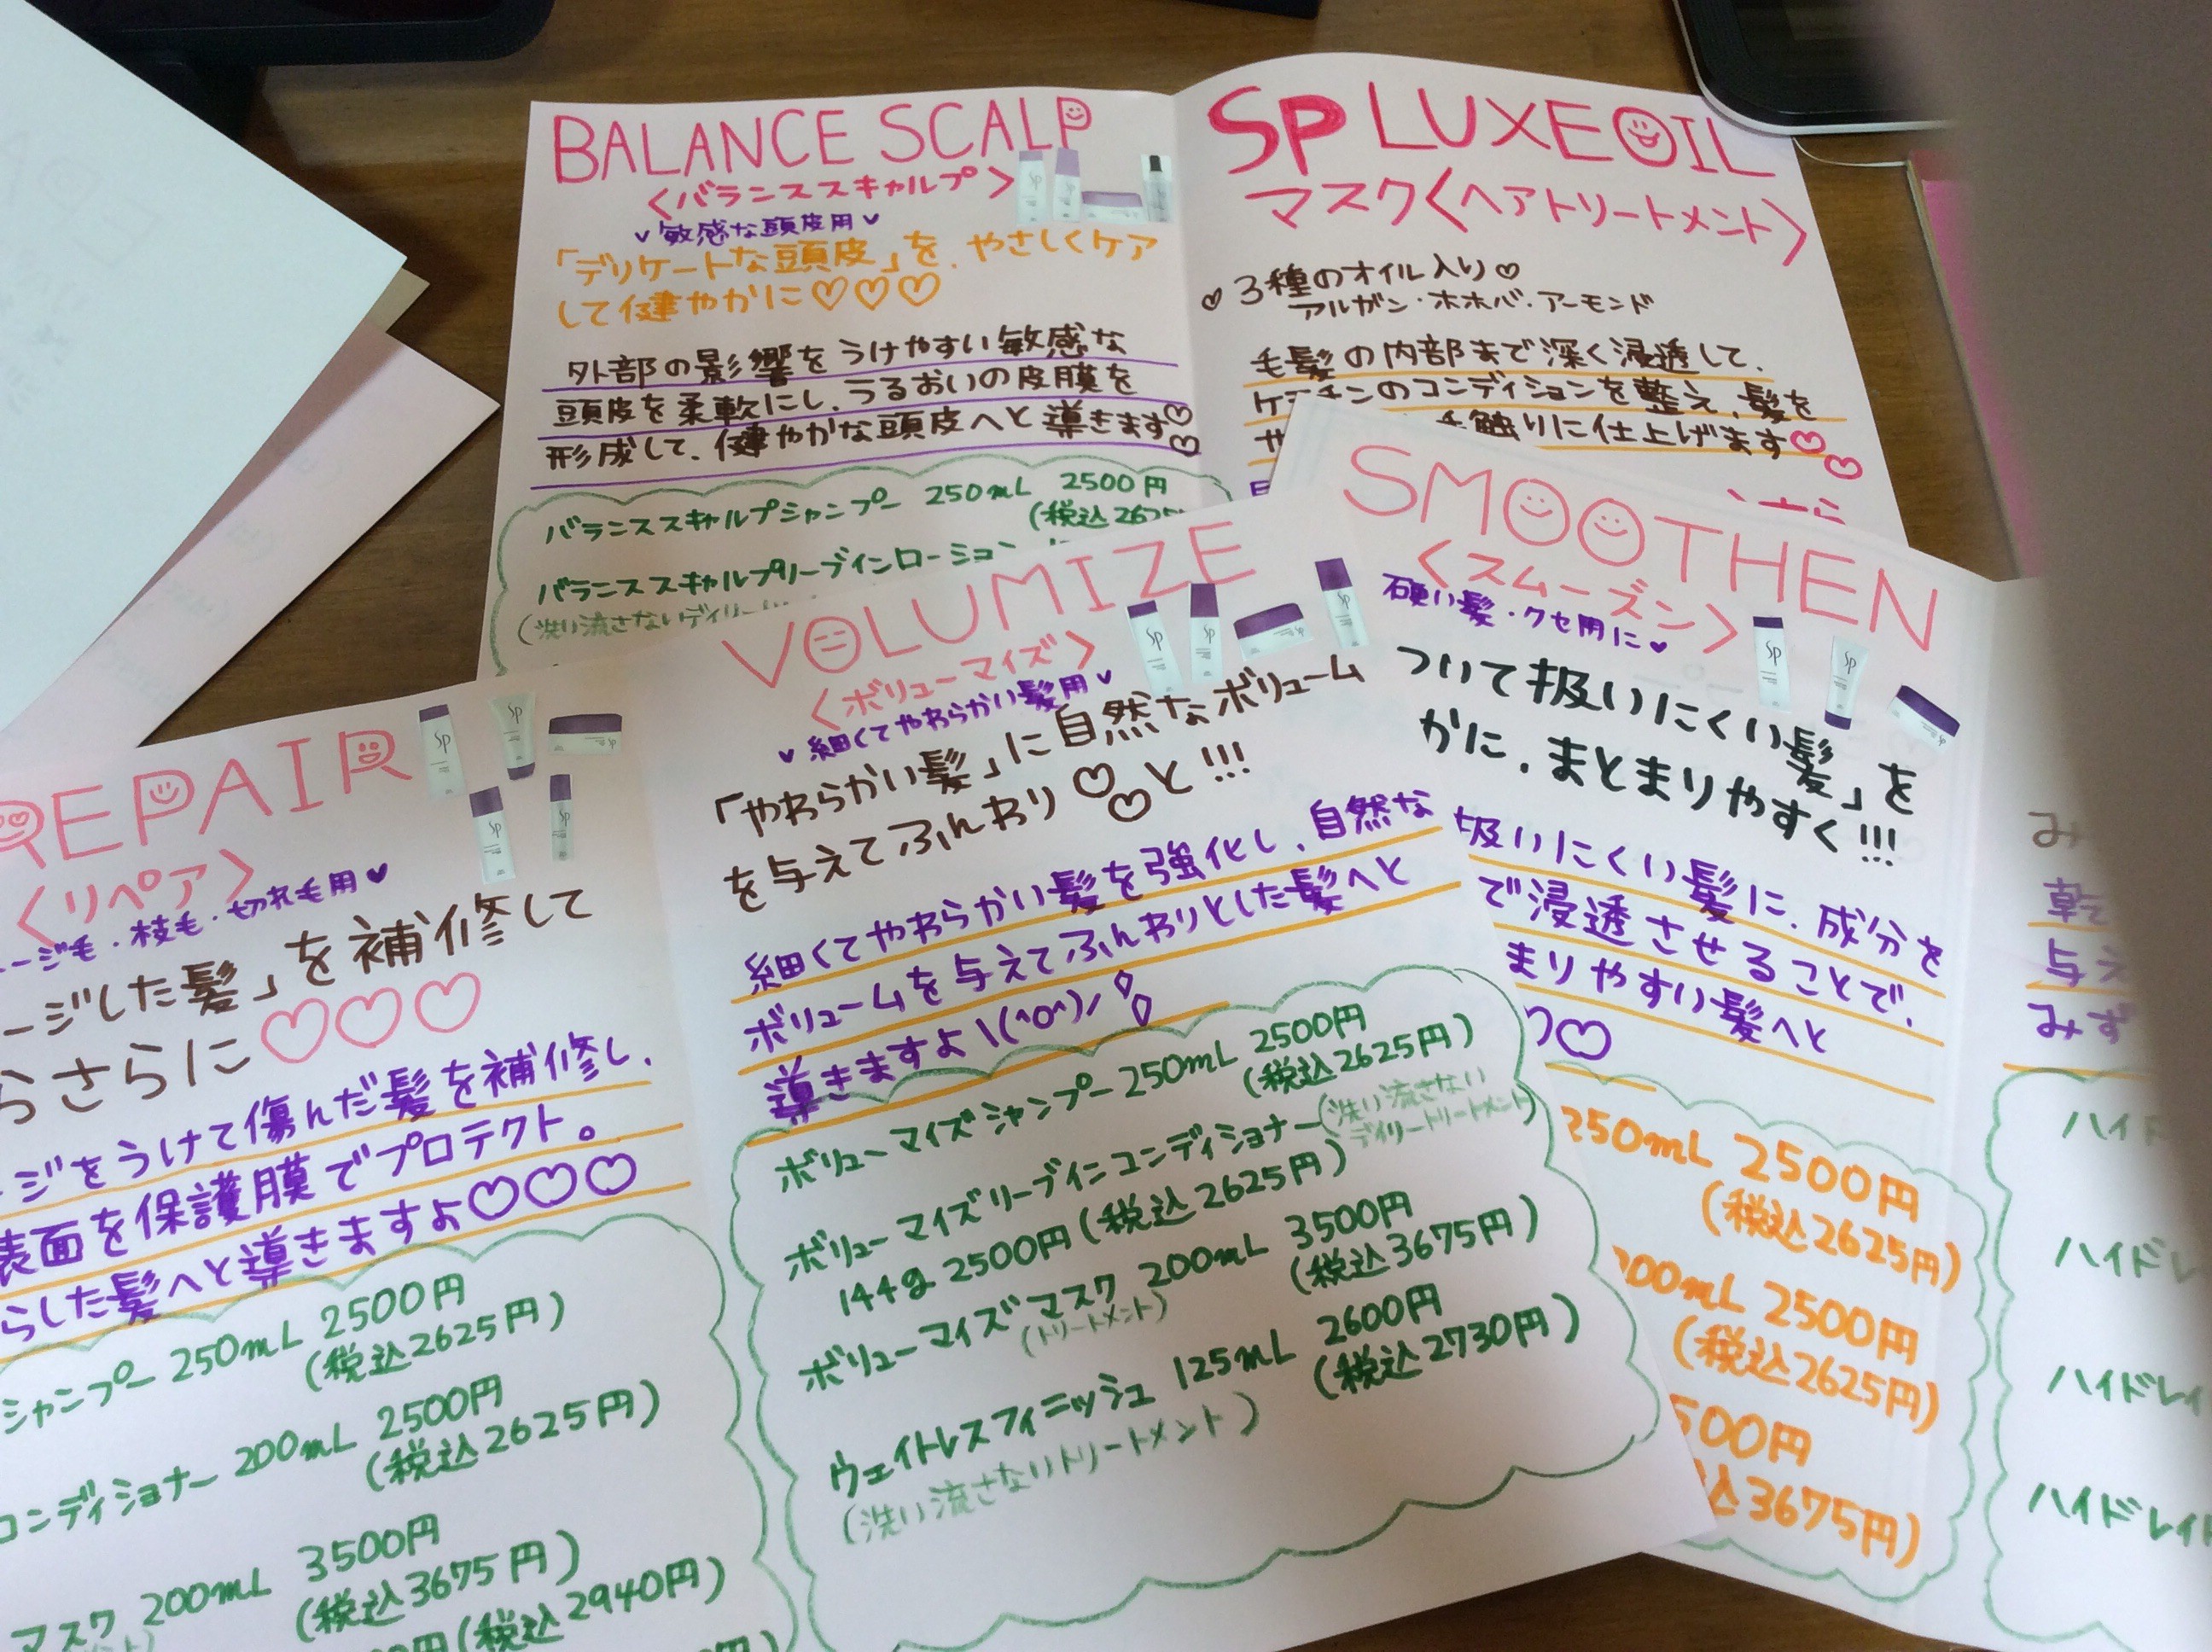 BALANCE SCALP
<バランススキャルプ>
敏感な頭皮用
「デリケートな頭皮」を、やさしくケア
して健やかに♡♡♡
外部の影響をうけやすい敏感な
頭皮を柔軟にし、うるおいの皮膜を
形成して、健やかな頭皮へと導きます♡♡
バランススキャルプシャンプー 250mL 2500円
(税込2625
バランススキャルプリーブインローション
(洗い流さないデイリー
SP LUXEOIL
マスク<ヘアトリートメント>
♡3種のオイル入り♡
アルガン・ホホバ・アーモンド
毛髪の内部まで深く浸透して、
ケラチンのコンディションを整え、髪を
触りに仕上げます♡♡
SMOOTHEN
<スムーズン>
硬い髪・クセ用に♥
ついて扱いにくい髪」を
かに、まとまりやすく!!!
扱いにくい髪に、成分を
で浸透させることで、
まりやすい髪へと
♡
250mL 2500円
(税込2625円)
200mL 2500円
(税込2625円)
500円
込3675円)
VOLUMIZE
<ボリューマイズ>
♥細くてやわらかい髪用♥
「やわらかい髪」に自然なボリューム
を与えてふんわり♡♡と!!!
細くてやわらかい髪を強化し、自然な
ボリュームを与えてふんわりとした髪へと
導きますよ\(^o^)/
ボリューマイズシャンプー 250mL 2500円
(税込2625円)
ボリューマイズリーブインコンディショナー(洗い流さない
デイリートリートメント)
144g 2500円(税込2625円)
ボリューマイズマスク 200mL 3500円
(トリートメント) (税込3675円)
ウェイトレスフィニッシュ 125mL 2600円
(洗い流さないトリートメント) (税込2730円)
REPAIR
<リペア>
ージ毛・枝毛・切れ毛用♥
ージした髪」を補修して
らさらに♡♡♡
ージをうけて傷んだ髪を補修し、
表面を保護膜でプロテクト。
らした髪へと導きますよ♡♡♡
シャンプー 250mL 2500円
(税込2625円)
コンディショナー 200mL 2500円
(税込2625円)
マスク 200mL 3500円
(税込3675円)
円(税込2940円)
み
乾
与え
みず
ハイド
ハイドレ
ハイドレイ
ハイドレイト